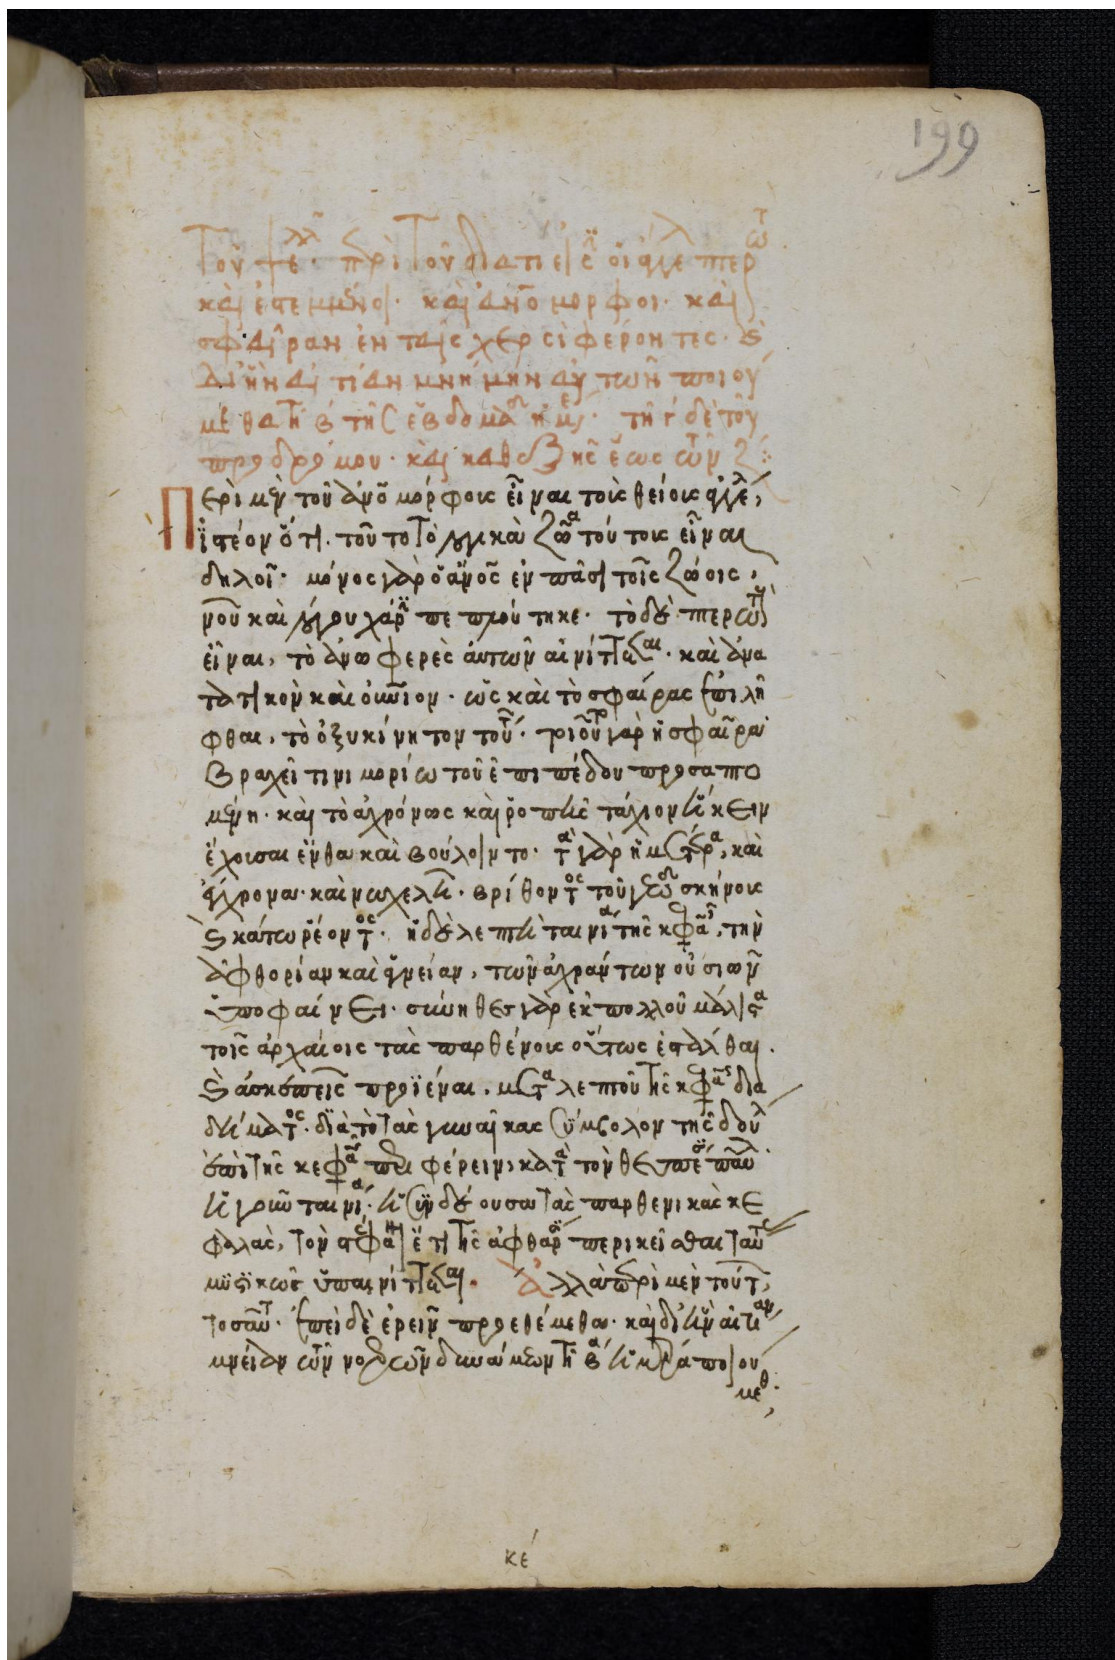 199
Τοῦ ψελλοῦ περὶ τοῦ διατί εἰσὶν οἱ ἄγγελοι πτερωτοὶ
καὶ ἐστεμμένοι. καὶ ἀνθρωπόμορφοι. καὶ
σφαῖραν ἐν ταῖς χερσὶ φέροντες. καὶ
δι' ἣν αἰτίαν μνήμην αὐτῶν ποιού
μεθα τῇ β τῆς ἑβδομάδος ἡμέρᾳ. τῇ γ δὲ τοῦ
προδρόμου. καὶ καθεξῆς ἕως τῶν ζ
Περὶ μὲν τοῦ ἀνθρωπομόρφοις εἶναι τοῖς θείοις ἀγγέλοις,
ἰστέον ὅτι. τοῦτο τὸ λογικὰ ζῶα τούτοις εἶναι
δηλοῖ. μόνος γὰρ ὁ ἄνθρωπος ἐν πᾶσι τοῖς ζώοις,
νοῦ καὶ λόγου χάρισι πεπλούτηκε. τὸ δὲ πτερωτοῖς
εἶναι, τὸ ἀνωφερὲς αὐτῶν αἰνίττεται. καὶ ἀνα
τατικὸν καὶ οὐράνιον. ὡς καὶ τὸ σφαίρας ἐπειλῆ
φθαι, τὸ ὀξυκίνητον τούτων. τοιοῦτον γὰρ ἡ σφαῖρα
βραχεῖ τινι μορίω τοῦ ἐπιπέδου προσαπτο
μένη. καὶ τὸ ἀχρόνως καὶ ῥοπῆς τάχιον ἥκειν
ἔχουσαι ἔνθα καὶ βούλοιντο. τὰ γὰρ ἡμέτερα, καὶ
ἔγχρονα καὶ νωχελῆ. βρίθοντος τοῦ γεώδους σκήνους
καὶ κάτω ῥέοντος. ἡ δὲ λεπτὴ ταινία τῆς κεφαλῆς, τὴν
ἀφθορίαν καὶ ἁγνείαν, τῶν ἀχράντων οὐσιῶν
ὑποφαίνει. σύνηθες γὰρ ἐκ πολλοῦ μάλιστα
τοῖς ἀρχαίοις τὰς παρθένους οὕτως ἐστάλθαι.
καὶ ἀσκεπεῖς προϊέναι, μετὰ λεπτοῦ τῆς κεφαλῆς δια
δήματος. διὰ τὸ τὰς γυναῖκας σύμβολον τῆς δουλείας
ἐπὶ τῆς κεφαλῆς περιφέρειν, κατὰ τὸν θεσπέσιον παῦλον
ἡ γοῦν ταινία. ἡ συνδέουσα τὰς παρθενικὰς κε
φαλὰς, τὸν στέφανον ἔτι τῆς ἀφθαρσίας περικεῖσθαι ταύτας
μυστικῶς ὑπαινίττεται. Ἀλλὰ περὶ μὲν τούτων,
τοσαῦτα. ἐπεὶ δὲ ἐρεῖν προεθέμεθα. καὶ δι' ἣν αἰτίαν
μνείαν τῶν νοερῶν δυνάμεων τῇ β ἡμέρα ποιού
μεθα.
κε